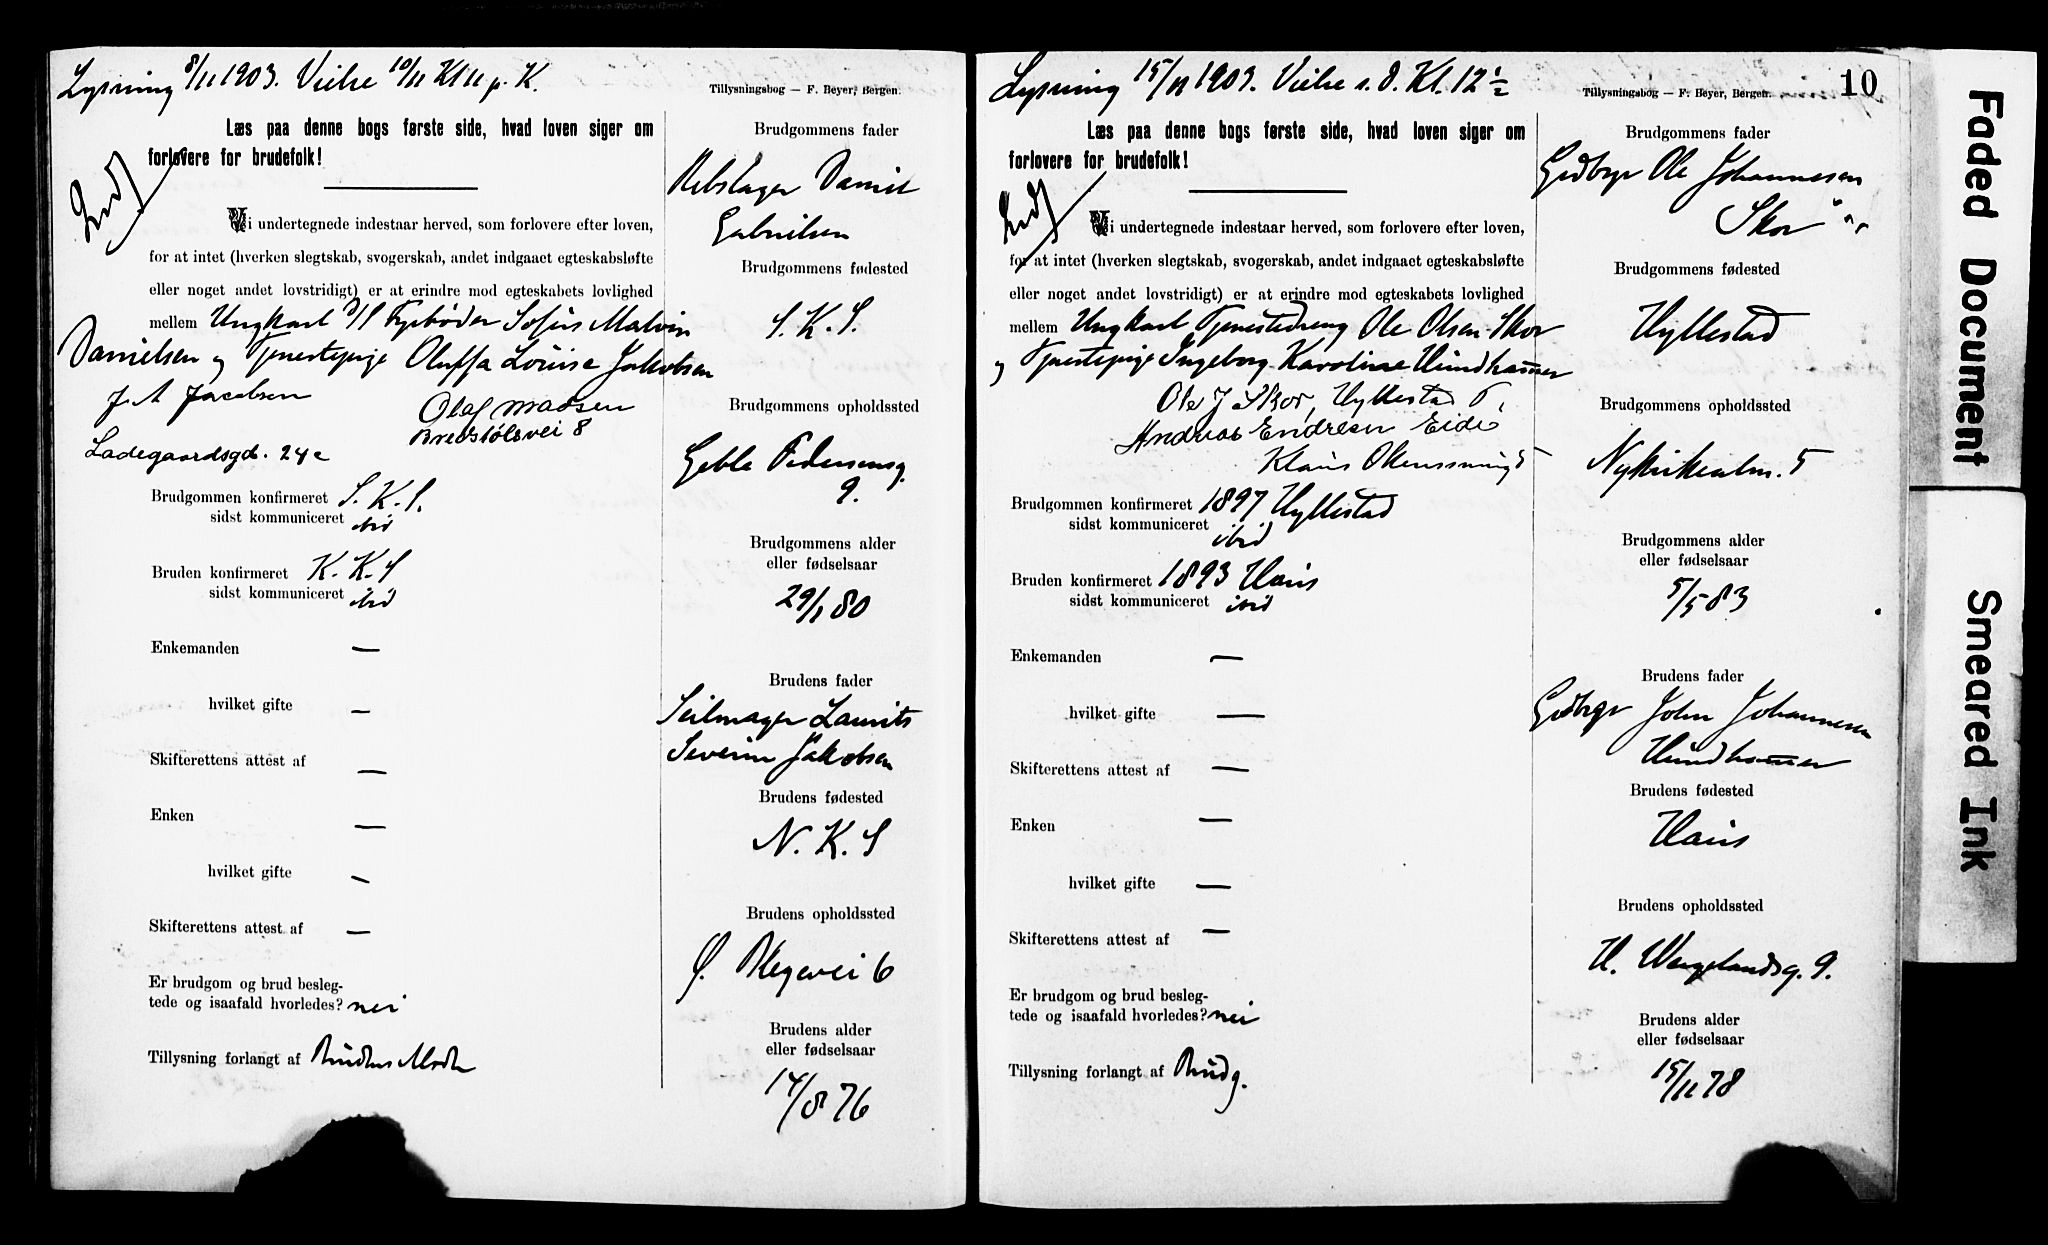 Lysning 8/11 1903. Vielse 10/11 Kl 11 p. K.
Tillysningsbog — F. Beyer, Bergen.
Læs paa denne bogs første side, hvad loven siger om
forlovere for brudefolk!
Indf
Vi undertegnede indestaar herved, som forlovere efter loven,
for at intet (hverken slegtskab, svogerskab, andet indgaaet egteskabsløfte
eller noget andet lovstridigt) er at erindre mod egteskabets lovlighed
mellem Ungkarl Fyrbøder Sofus Malvin
Danielsen og Tjenestepige Oluffa Louise Jakobsen
J. A Jacobsen
Olaf Madsen
Bredstølsvei 8
Ladegaardsgd. 24c
Brudgommen konfirmeret S. K. S.
sidst kommuniceret ibid
Bruden konfirmeret K. K. S
sidst kommuniceret ibid
Enkemanden —
hvilket gifte —
Skifterettens attest af —
Enken —
hvilket gifte —
Skifterettens attest af —
Er brudgom og brud besleg-
tede og isaafald hvorledes? nei
Tillysning forlangt af Brudens Moder
Brudgommens fader
Rebslager Daniel
Gabrielsen
Brudgommens fødested
S. K. S.
Brudgommens opholdssted
Geble Pedersensg.
9.
Brudgommens alder
eller fødselsaar
29/1 80
Brudens fader
Seilmager Laurits
Severin Jakobsen
Brudens fødested
N. K. S
Brudens opholdssted
Ø. Blegevei 6
Brudens alder
eller fødselsaar
14/8 76
Lysning 15/11 1903. Vielse s. d. Kl. 12 1/2
Tillysningsbog — F. Beyer, Bergen.
10
Læs paa denne bogs første side, hvad loven siger om
forlovere for brudefolk!
Indf
Vi undertegnede indestaar herved, som forlovere efter loven,
for at intet (hverken slegtskab, svogerskab, andet indgaaet egteskabsløfte
eller noget andet lovstridigt) er at erindre mod egteskabets lovlighed
mellem Ungkarl Tjenestedreng Ole Olsen Skor
og Tjenestepige Ingeborg Karoline Hundhammer
Ole J Skor, Hyllestad
Andreas Endresen Eide
Klaus
Brudgommen konfirmeret 1897 Hyllestad
sidst kommuniceret ibid
Bruden konfirmeret 1893 Haus
sidst kommuniceret ibid
Enkemanden —
hvilket gifte —
Skifterettens attest af —
Enken —
hvilket gifte —
Skifterettens attest af —
Er brudgom og brud besleg-
tede og isaafald hvorledes? nei
Tillysning forlangt af Brudg.
Brudgommens fader
Grdbrgr Ole Johannesen
Skor
Brudgommens fødested
Hyllestad
Brudgommens opholdssted
Nykirkealm. 5
Brudgommens alder
eller fødselsaar
5/5 83
Brudens fader
Grdbrgr John Johannesen
Hundhammer
Brudens fødested
Haus
Brudens opholdssted
H. Wergelandsg. 9.
Brudens alder
eller fødselsaar
15/11 78
Faded Document
Smeared Ink